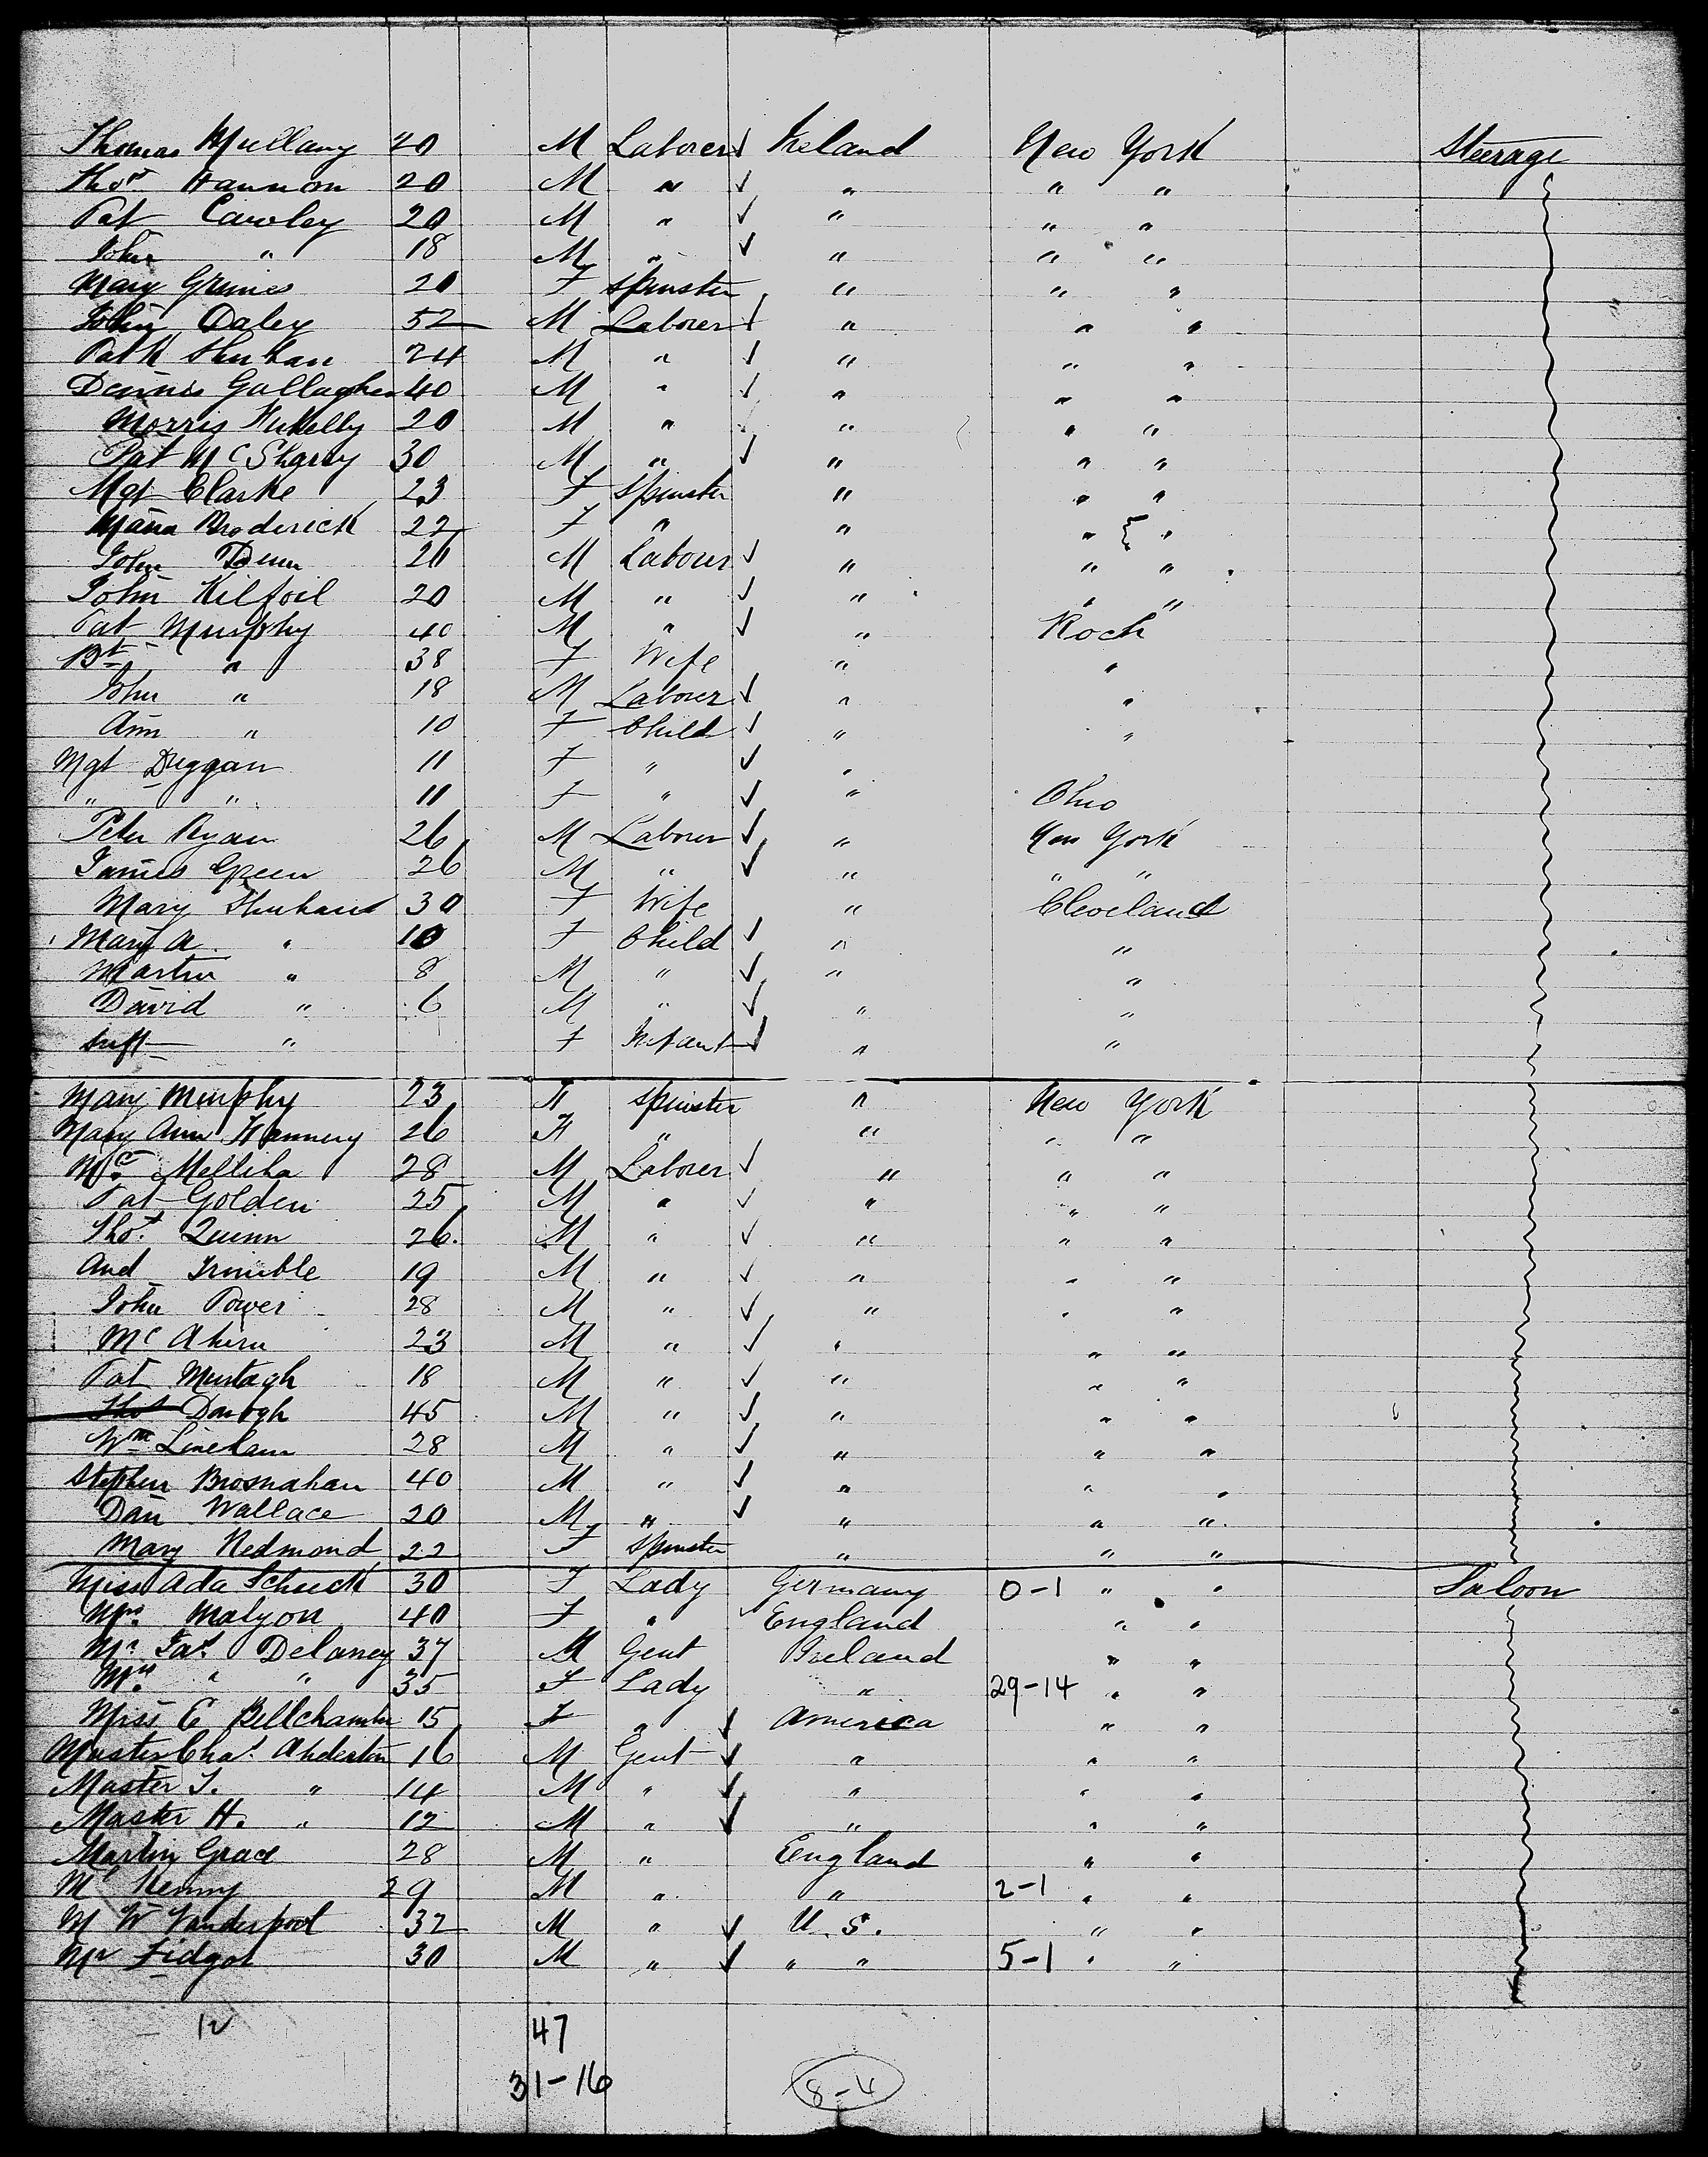 Thomas Mullany 20 M Laborer Ireland New York Steerage
Thos Hannon 20 M " " " "
Pat Cawley 20 M " " " "
John " 18 M " " " "
Mary Grimes 20 F Spinster " " "
John Daley 52 M Laborer " " "
Patk 24 M " " " "
Dennis Gallagher 40 M " " " "
Morris 20 M " " " "
Pat McSharry 30 M " " " "
Mgt Clarke 23 F Spinster " " "
Maria Broderick 22 F " " " "
John Dunn 20 M Laborer " " "
John Kilfoil 20 M " " " "
Pat Murphy 40 M " " Roch
Bt " 38 F Wife " "
John " 18 M Laborer " "
Ann " 10 F Child " "
Mgt Duggan 11 F " "
" " 11 F " " Ohio
Peter Ryan 26 M Laborer " New York
James Green 26 M " " " "
Mary 30 F Wife " Cleveland
Mary A " 10 F Child " "
Martin " 8 M " " "
David " 6 M " " "
Inft " F Infant " "
Mary Murphy 23 F Spinster " New York
Mary Ann Flannery 26 F " " " "
Mc 28 M Laborer " " "
Pat Golden 25 M " " " "
Thos Quinn 26 M " " " "
And Trimble 19 M " " " "
John Power 28 M " " " "
Mc Ahern 23 M " " " "
Pat Murtagh 18 M " " " "
Thos Darogh 45 M " " " "
Wm Lineham 28 M " " " "
Stephen Brosnahan 40 M " " " "
Dan Wallace 20 M " " " "
Mary Redmond 22 F Spinster " " "
Miss Ada Schuck 30 F Lady Germany 0-1 " " Saloon
Mrs Malyon 40 F " England " "
Mr Jas Delaney 37 M Gent Ireland " "
Mrs " " 35 F Lady " 29-14 " "
Miss E Bellchamber 15 F " America " "
Master Chas 16 M Gent " " "
Master J. " 14 M " " " "
Master H. " 12 M " " " "
Martin Grace 28 M " England " "
Mr Kenny 29 M " " 2-1 " "
M W Vanderpool 32 M " U.S. " "
Mr 30 M " " " 5-1 " "
12 47
31-16 8-4